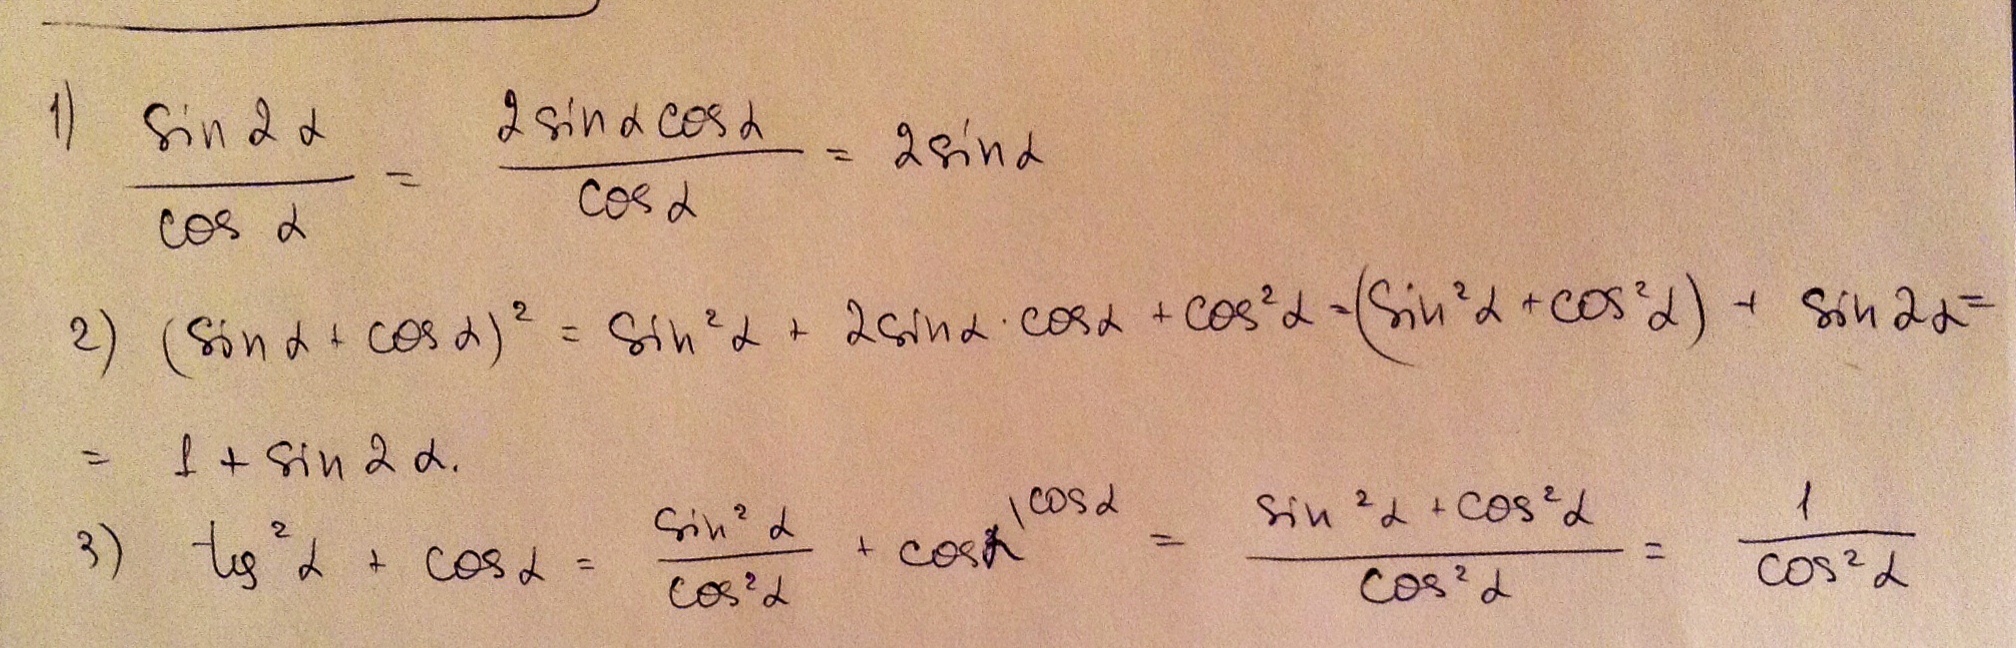 1) sin2α / cos α = 2sinαcosα / cosα = 2sinα
2) (sinα + cosα)² = sin²α + 2sinα · cosα + cos²α = (sin²α + cos²α) + sin2α =
= 1 + sin2α.
3) tg²α + cosα = sin²α / cos²α + cosα \cosα = sin²α + cos²α / cos²α = 1 / cos²α